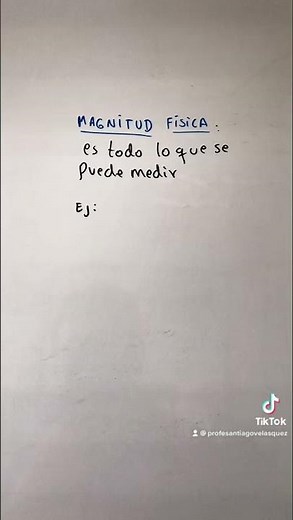 MAGNITUD FÍSICA:
es todo lo que se
puede medir
Ej:
TikTok
@profesantiagovelasquez